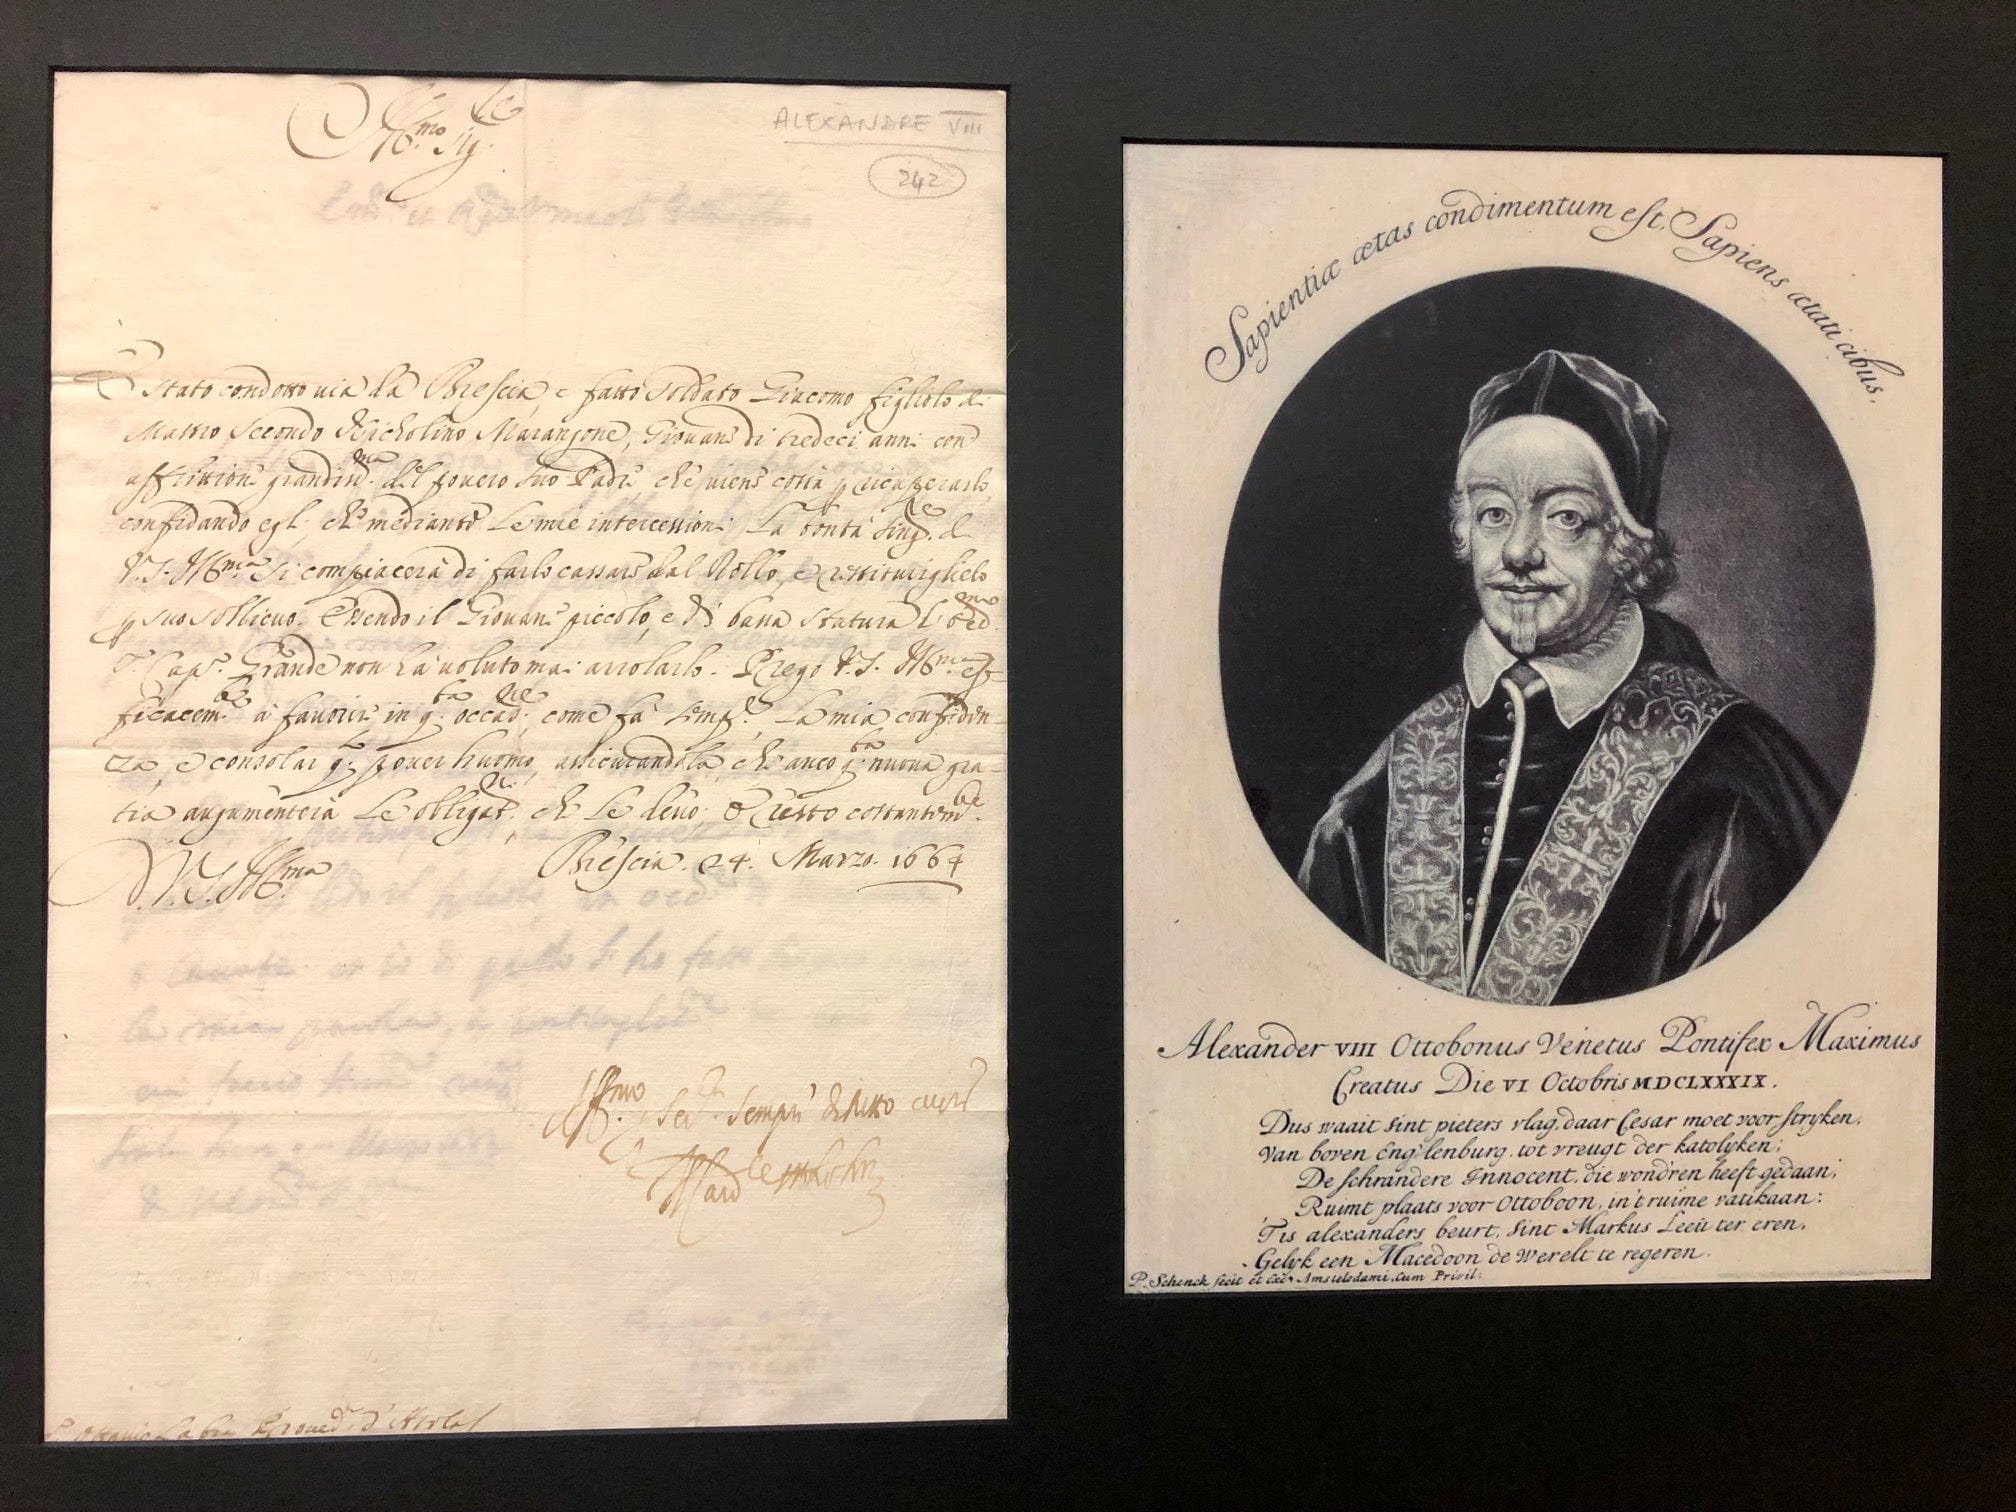 ALEXANDRE VIII
242
Ill.mo Sig.re
È stato condotto via da Brescia, e fatto soldato Giacomo figliolo di
Matteo Secondo Nicholino Marangone, Giovane di tredeci anni con
afflittione grandiss.ma del povero suo Padre, che viene costà p ricuperarlo,
confidando egli, che mediante le mie intercessioni la bontà sing.re di
V.S. Ill.ma si compiacerà di farlo cassare dal Rollo, e restituirglielo
p suo sollievo. Essendo il Giovane piccolo, e di bassa statura l'
Cap.o Grande non l'à voluto mai arrolarlo. Prego V.S. Ill.ma ef-
ficacem.te à favorire in q.ta occas.ne, come fà semp.e, la mia confiden-
za, e consolar q. pover huomo, assicurandola, che anco q.ta nuova gra-
tia augumenterà le obligat.ni, che le devo, e resto costantem.te
D.V.S. Ill.ma
Brescia. 24. Marzo. 1664
Aff.mo p Ser.re sempre di tutto cuore
Il Card.le
Proved.r d'
Sapientiæ ætas condimentum est, Sapiens ætati cibus.
Alexander VIII Ottobonus Venetus Pontifex Maximus
Creatus Die VI Octobris MDCLXXXIX.
Dus waait sint pieters vlag, daar Cesar moet voor stryken,
Van boven Eng'lenburg, tot vreugt der katolyken;
De schrandere Innocent, die wond'ren heeft gedaan,
Ruimt plaats voor Ottoboon, in't ruime vatikaan:
'Tis alexanders beurt, Sint Markus Leeu ter eren,
Gelyk een Macedoon de werelt te regeren.
P. Schenck fecit et Exc. Amstelodami, Cum Privil: